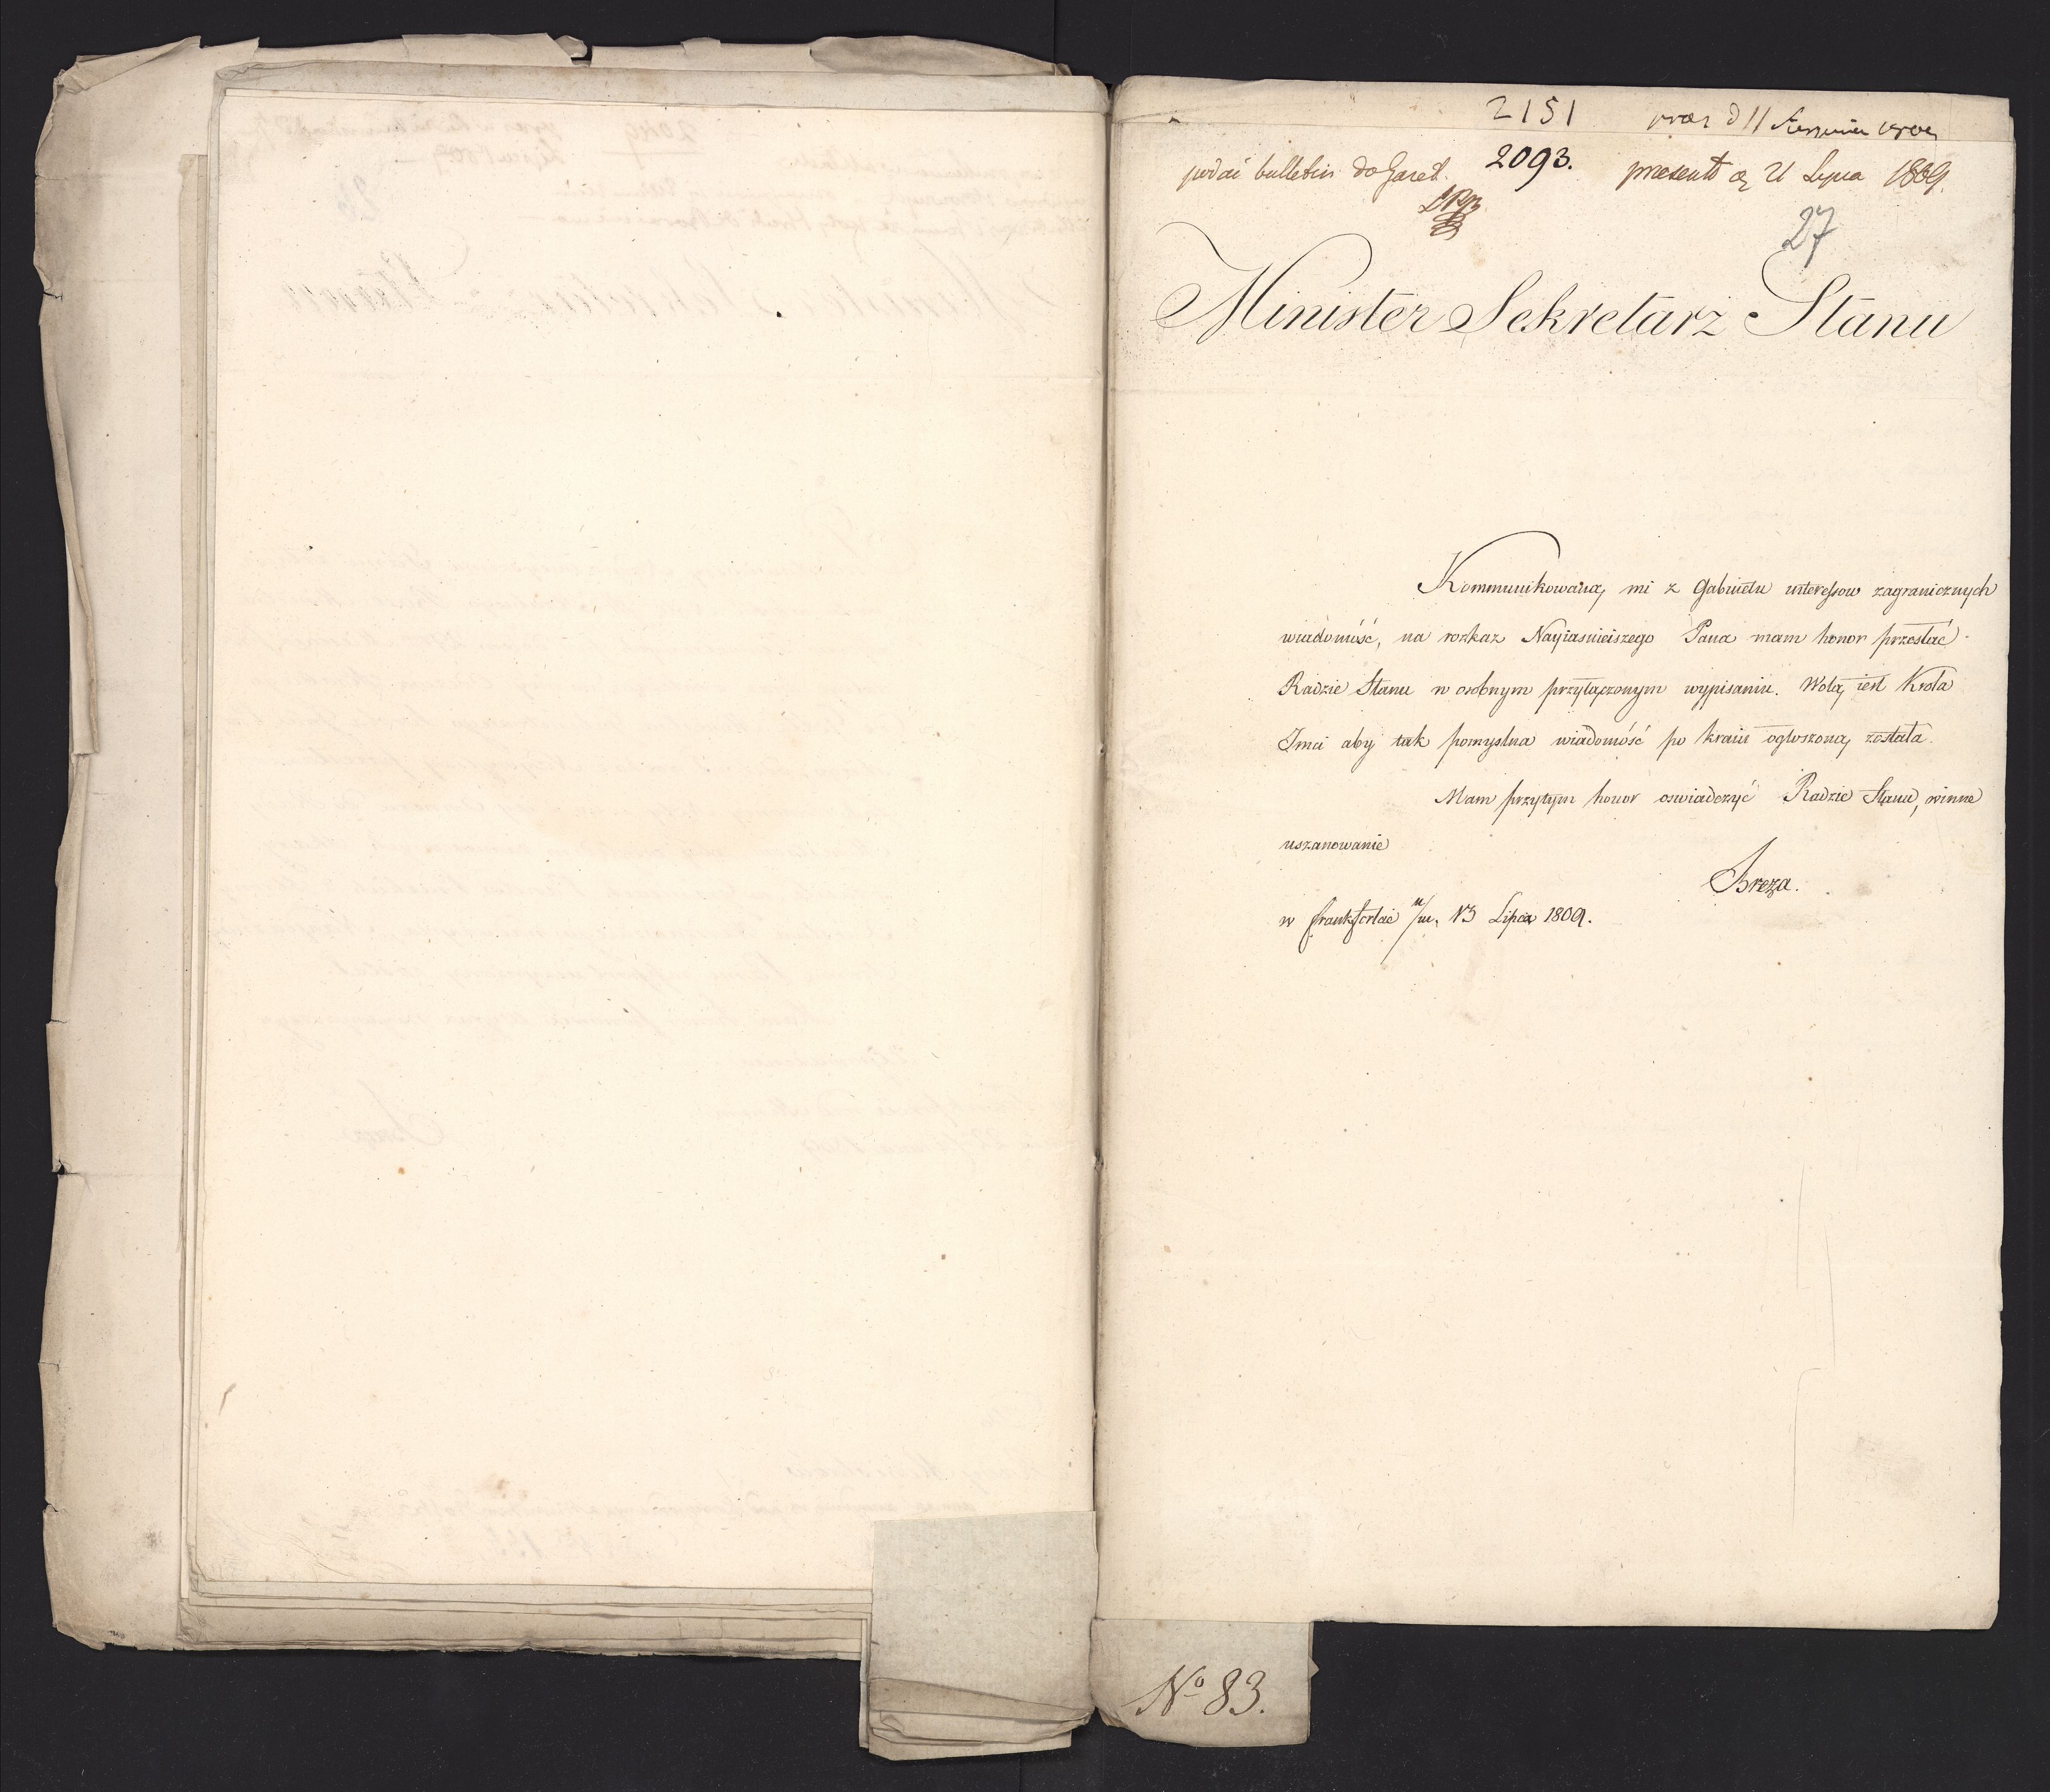 2151 praes d 11 Sierpnia 1809
podać bulletin do Gazet. 2093. praesent d 21 Lipca 1809.
27
Minister Sekretarz Stanu
Kommunikowaną mi z Gabinetu interessow zagranicznych
wiadomość, na rozkaz Nayiasnieiszego Pana mam honor przesłać
Radzie Stanu w osobnym przyłączonym wypisaniu. Wolą iest Krola
Jmci aby tak pomyslna wiadomość po kraiu ogłoszoną została.
Mam przytym honor oswiadczyć Radzie Stanu, winne
uszanowanie
Breza.
w Frankforcie n/m. 13 Lipca 1809.
No 83.